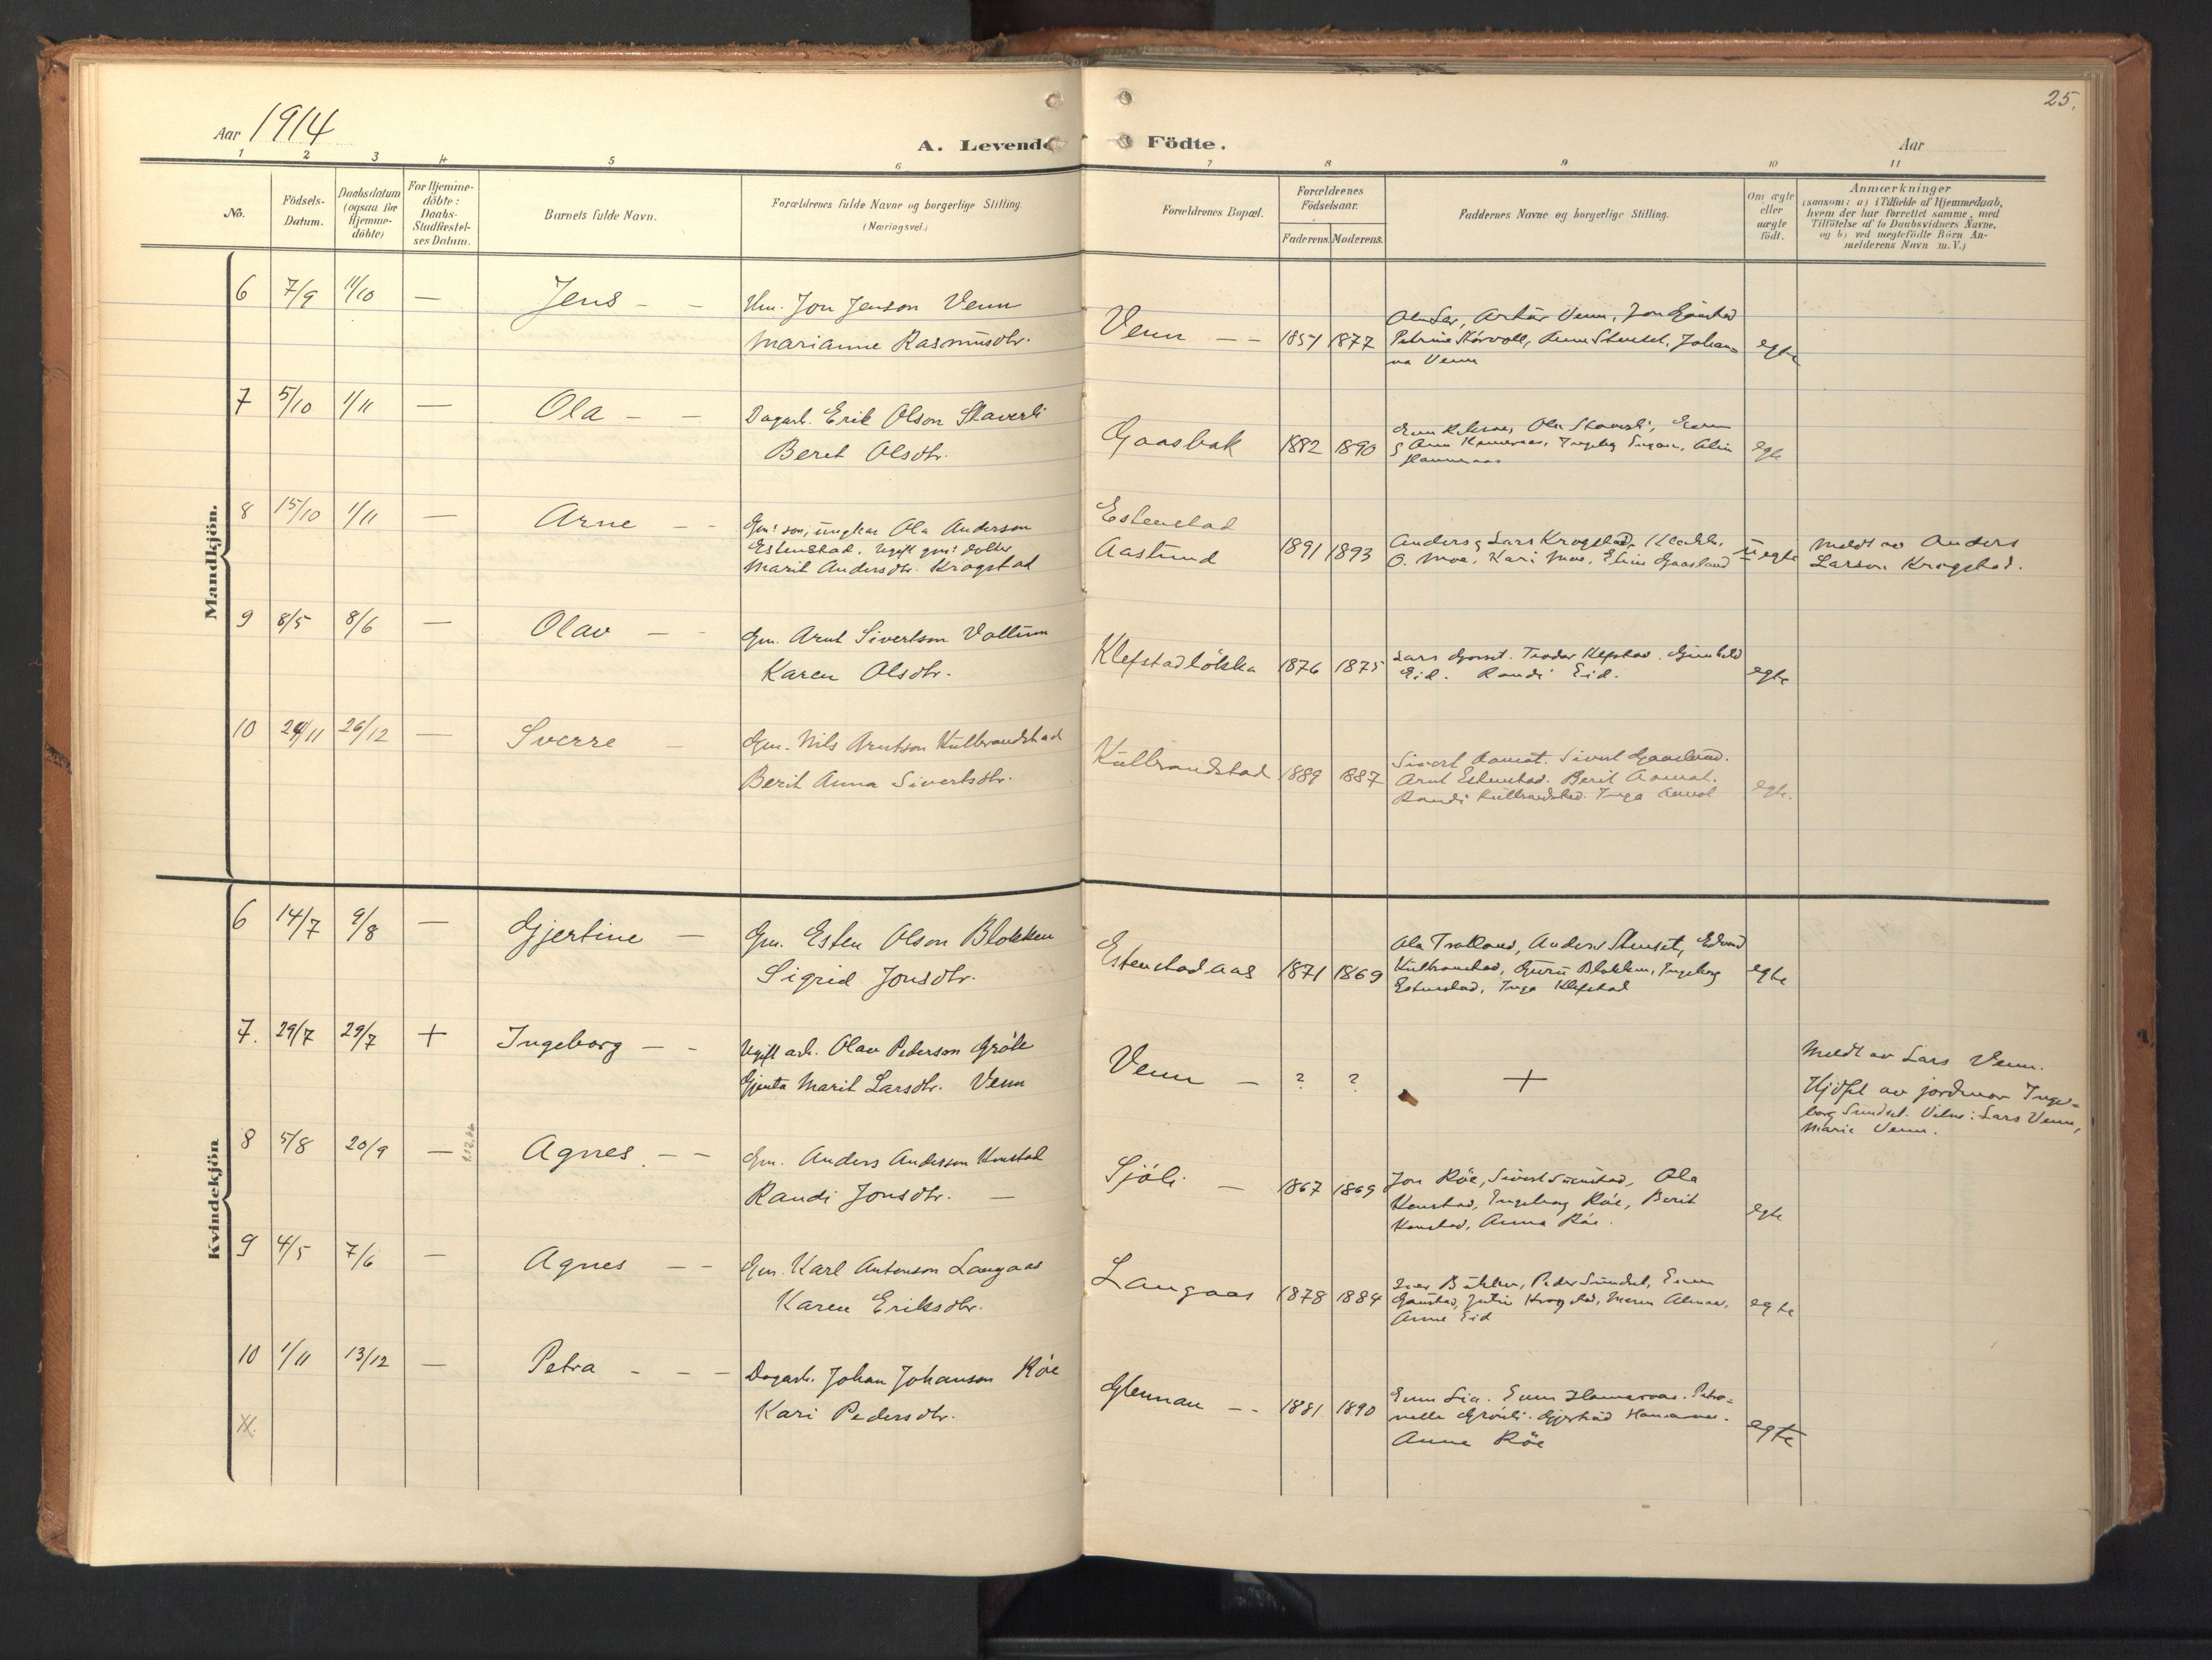 25.
Aar 1914
A. Levende Födte.
Aar
1 2 3 4 5 6 7 8 9 10 11
No.
Födsels-
Datum.
Daabsdatum
(ogsaa for
Hjemme-
döbte)
For Hjemme-
döbte:
Daabs-
Stadfæstel-
ses Datum.
Barnets fulde Navn.
Forældrenes fulde Navne og borgerlige Stilling
(Næringsvei.)
Forældrenes Bopæl.
Forældrenes
Födselsaar.
Faderens. Moderens.
Faddernes Navne og borgerlige Stilling.
Om ægte
eller
uægte
födt.
Anmærkninger
(saasom: a) i Tilfælde af Hjemmedaab,
hvem der har forrettet samme, med
Tilföielse af to Daabsvidners Navne,
og b) ved uægtefödte Börn An-
melderens Navn m. V.)
Mandkjön.
6 7/9 11/10 — Jens - -
Jon Jenson Venn
Marianne Rasmusdtr.
Venn - - 1857 1877
Artur Venn, Jon
Petrine Körvoll, Johan-
na Venn
egte
7 5/10 1/11 — Ola - -
Dagarb. Erik Olson Slaverli
Beret Olsdtr.
Gaasbak 1882 1890
egte
8 15/10 1/11 — Arne - -
Gm: son, ungkar Ola Anderson
Estenstad. Ugift gm: dotter
Marit Andersdtr. Krogstad
Estenstad
Aaslund 1891 1893
Anders & Lars Krogstad,
O. Moe, Kari Moe, Elin Gaasland
uegte
Meldt av Anders
Larson Krogstad.
9 8/5 8/6 — Olav - -
Gm. Arnt Sivertson Vollum
Karen Olsdtr.
Klefstadlökka 1876 1875
Lars Teodor Klefstad. Gunhild
Eid. Randi Eid.
egte
10 29/11 26/12 — Sverre -
Gm. Nils Arntson Kulbrandstad
Berit Anna Sivertsdtr.
Kulbrandstad 1889 1887
Sivert Aamot. Sivert Gaasland.
Arnt Estenstad. Berit Aamot.
Randi Kulbrandstad. Inga Aamot
egte.
Kvindekjön
6 14/7 9/8 — Gjertine -
Gm. Esten Olson Blokken
Sigrid Jonsdtr.
Estenstadaas 1871 1869
Ola Anders Stenset, Edvard
Kulbranstad, Guru Blokken, Ingeborg
Estenstad, Inga Klefstad
egte
7. 29/7 29/7 + Ingeborg - -
Ugift arb. Olav Pederson Gröte
Gjenta Marit Larsdtr. Venn
Venn - ? ? +
Meldt av Lars Venn.
Hjdpt av jordmor Inge-
borg Sundset. Vitne: Lars Venn,
Marie Venn.
8 5/8 20/9 — Agnes - -
1.12.66
Gm. Anders Anderson Konstad
Randi Jonsdtr. -
Sjöli - 1867 1869
Jon Röe, Sivert Ola
Konstad, Ingeborg Röe, Berit
Konstad, Anna Röe.
egte
9 4/5 7/6 — Agnes - -
Gm. Karl Antonson Langaas
Karen Eriksdtr.
Langaas 1878 1884
Iver Peder Sundset,
Krogstad, Maren
Anne Eid
egte
10 1/11 13/12 — Petra - - -
Dagarb. Johan Johanson Röe
Kari Pedersdtr.
Glennan - - 1881 1890
Petro-
nelle
Anne Röe
egte